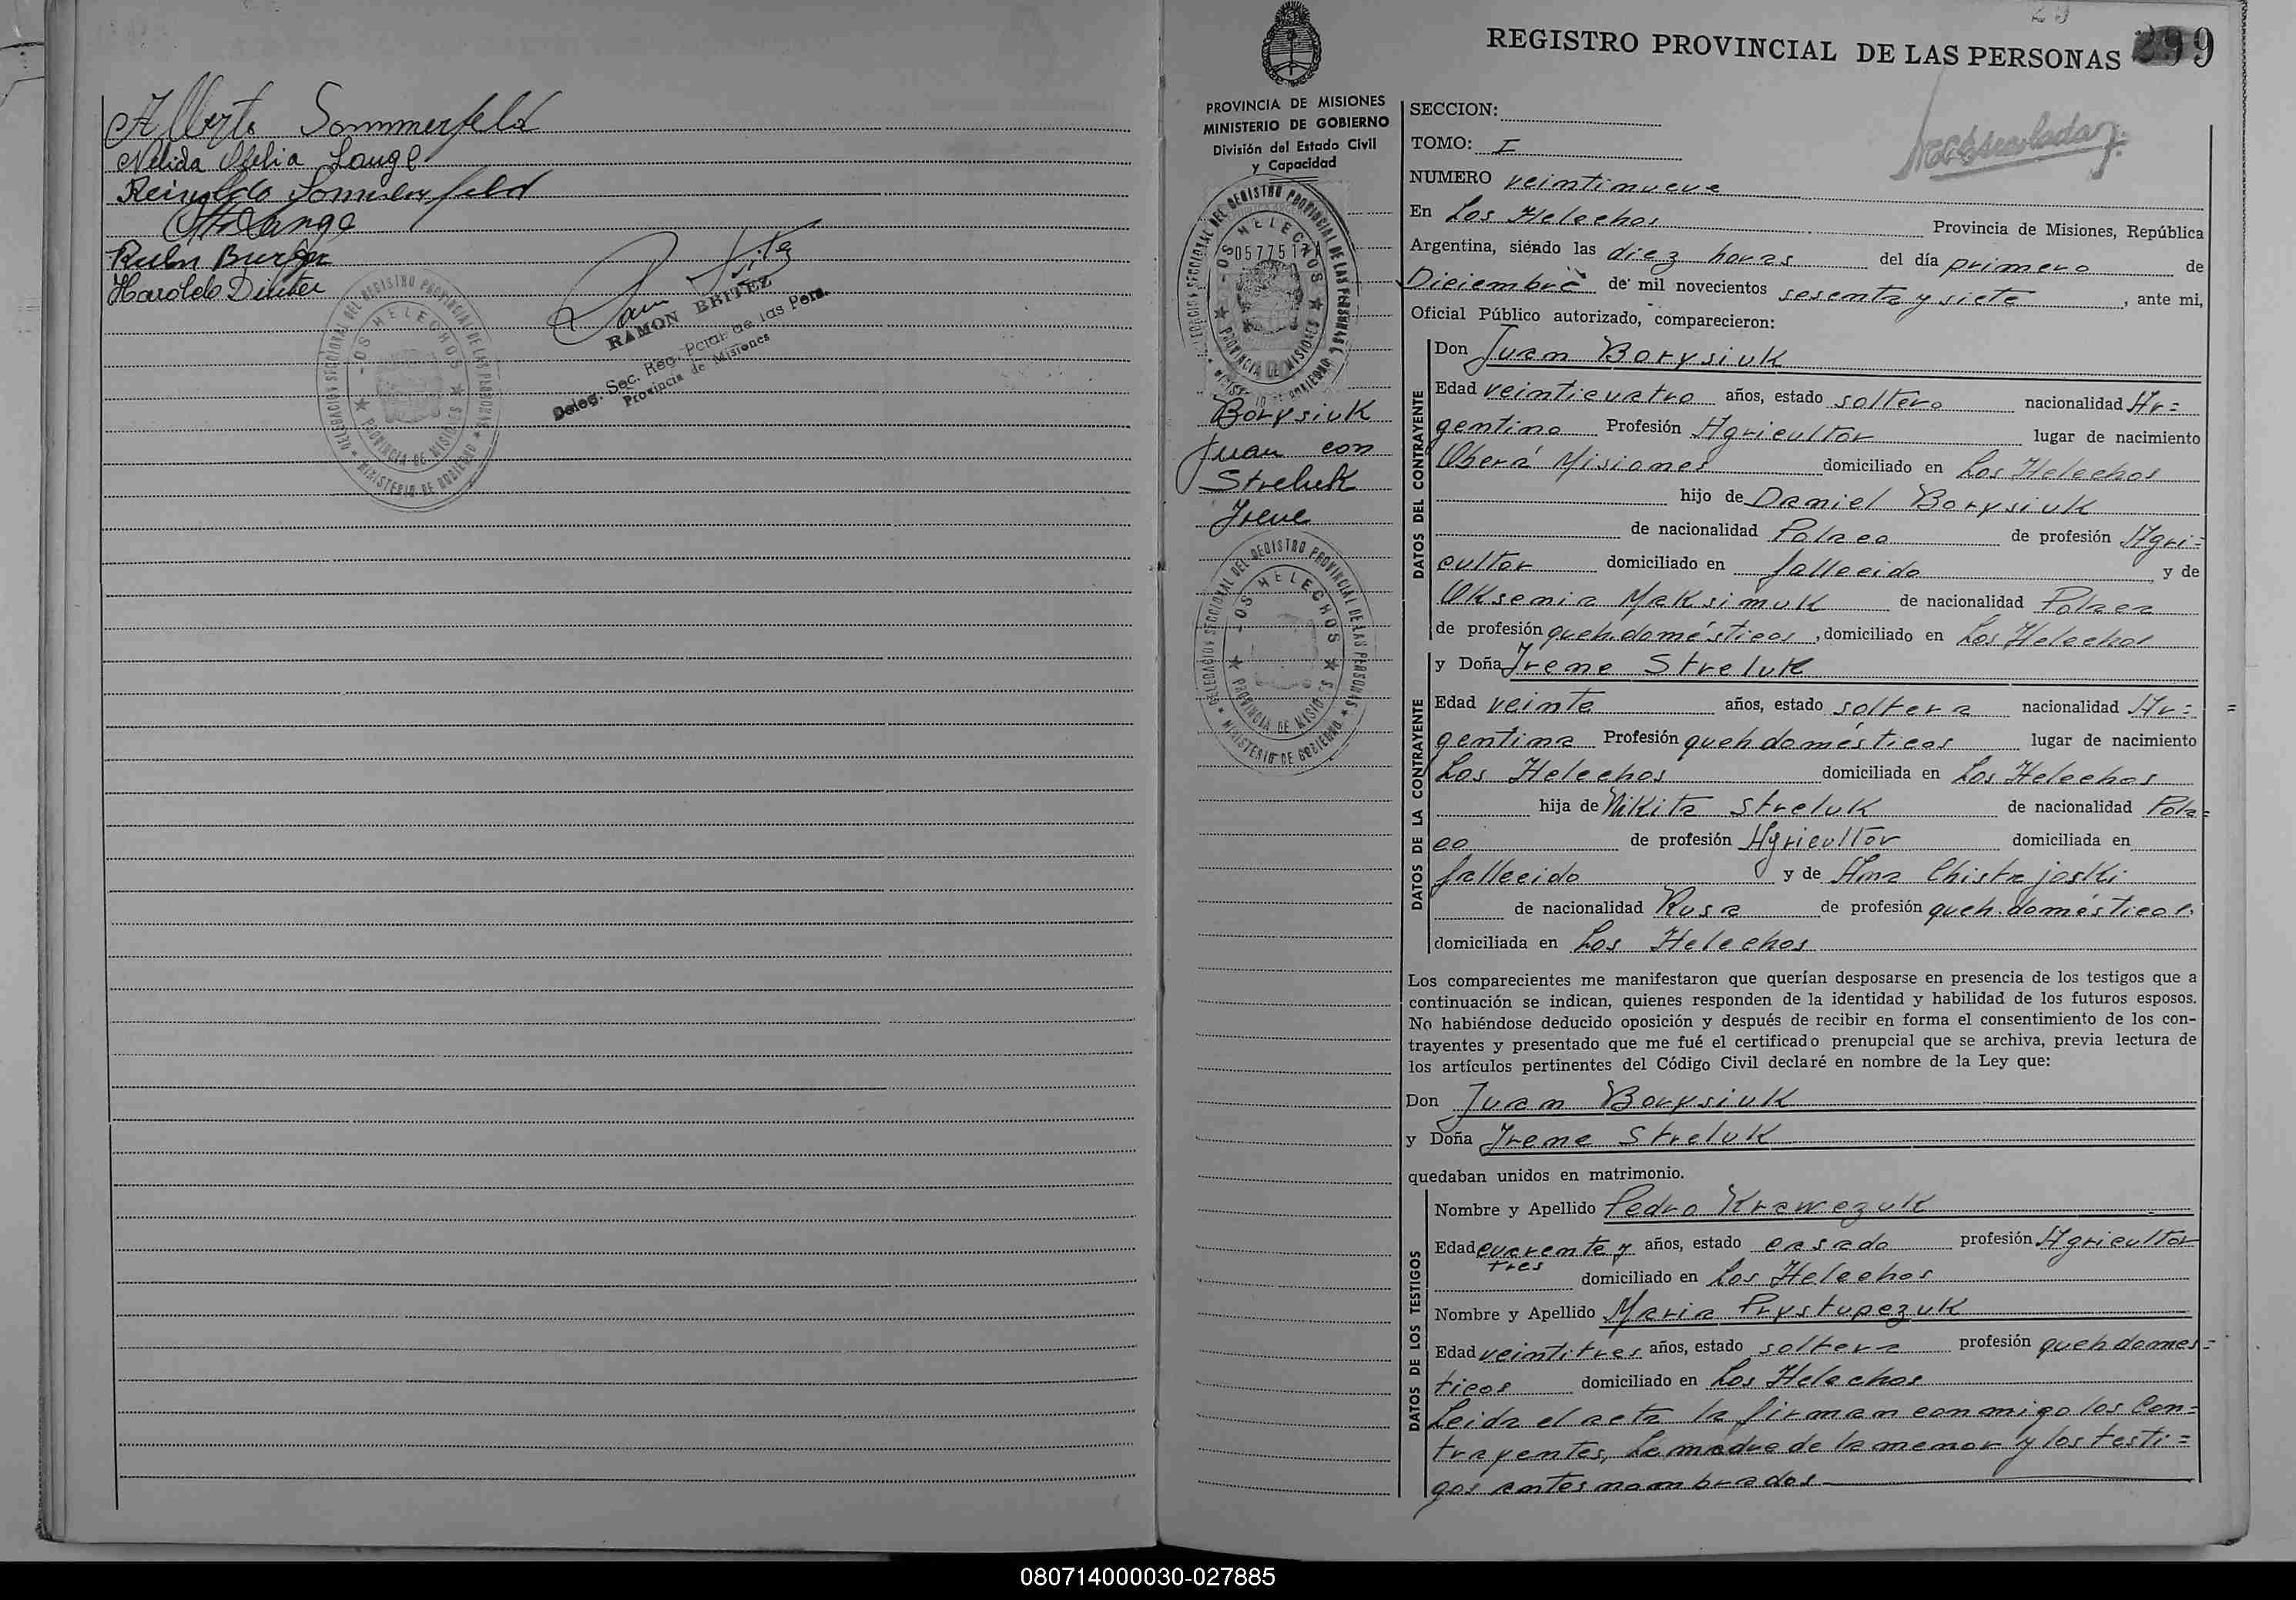 Alberto Sommerfeld
Nelida Ofelia Lange
Reinoldo Sommerfeld
Otto Lange
Ruben Burger
Haroldo
RAMON BRITEZ
Deleg. Sec. Reg. Pcial de las Pers.
Provincia de Misiones
DELEGACION SECCIONAL DEL REGISTRO PROVINCIAL DE LAS PERSONAS
LOS HELECHOS
PROVINCIA DE MISIONES
MINISTERIO DE GOBIERNO
REGISTRO PROVINCIAL DE LAS PERSONAS 299
PROVINCIA DE MISIONES
MINISTERIO DE GOBIERNO
División del Estado Civil
y Capacidad
DELEGACION SECCIONAL DEL REGISTRO PROVINCIAL DE LAS PERSONAS
LOS HELECHOS
PROVINCIA DE MISIONES
MINISTERIO DE GOBIERNO
Borysiuk
Juan con
Streluk
Irene
DELEGACION SECCIONAL DEL REGISTRO PROVINCIAL DE LAS PERSONAS
LOS HELECHOS
PROVINCIA DE MISIONES
MINISTERIO DE GOBIERNO
SECCION:
TOMO: I
NUMERO veintinueve
En Los Helechos Provincia de Misiones, República
Argentina, siendo las diez horas del día primero de
Diciembre de mil novecientos sesenta y siete, ante mi,
Oficial Público autorizado, comparecieron:
DATOS DEL CONTRAYENTE
Don Juan Borysiuk
Edad veinticuatro años, estado soltero nacionalidad Ar=
gentino Profesión Agricultor lugar de nacimiento
Oberá Misiones domiciliado en Los Helechos
hijo de Daniel Borysiuk
de nacionalidad Polaco de profesión Agri=
cultor domiciliado en fallecido y de
Oksenia Maksimuk de nacionalidad Polaca
de profesión queh. domésticos, domiciliado en Los Helechos
DATOS DE LA CONTRAYENTE
y Doña Irene Streluk
Edad veinte años, estado soltera nacionalidad Ar=
gentina Profesión queh domésticos lugar de nacimiento
Los Helechos domiciliada en Los Helechos
hija de Nikita Streluk de nacionalidad Pola=
co de profesión Agricultor domiciliada en
fallecido y de Ana Chistajoski
de nacionalidad Rusa de profesión queh. domésticos,
domiciliada en Los Helechos
Los comparecientes me manifestaron que querían desposarse en presencia de los testigos que a
continuación se indican, quienes responden de la identidad y habilidad de los futuros esposos.
No habiéndose deducido oposición y después de recibir en forma el consentimiento de los con-
trayentes y presentado que me fué el certificado prenupcial que se archiva, previa lectura de
los artículos pertinentes del Código Civil declaré en nombre de la Ley que:
Don Juan Borysiuk
y Doña Irene Streluk
quedaban unidos en matrimonio.
DATOS DE LOS TESTIGOS
Nombre y Apellido Pedro Krawczuk
Edad cuarenta y años, estado casado profesión Agricultor
tres domiciliado en Los Helechos
Nombre y Apellido Maria Prystupczuk
Edad veintitres años, estado soltera profesión queh domes=
ticos domiciliado en Los Helechos
Leida el acta la firman conmigo los Con=
trayentes, La madre de la menor y los testi=
gos antes nombrados
080714000030-027885